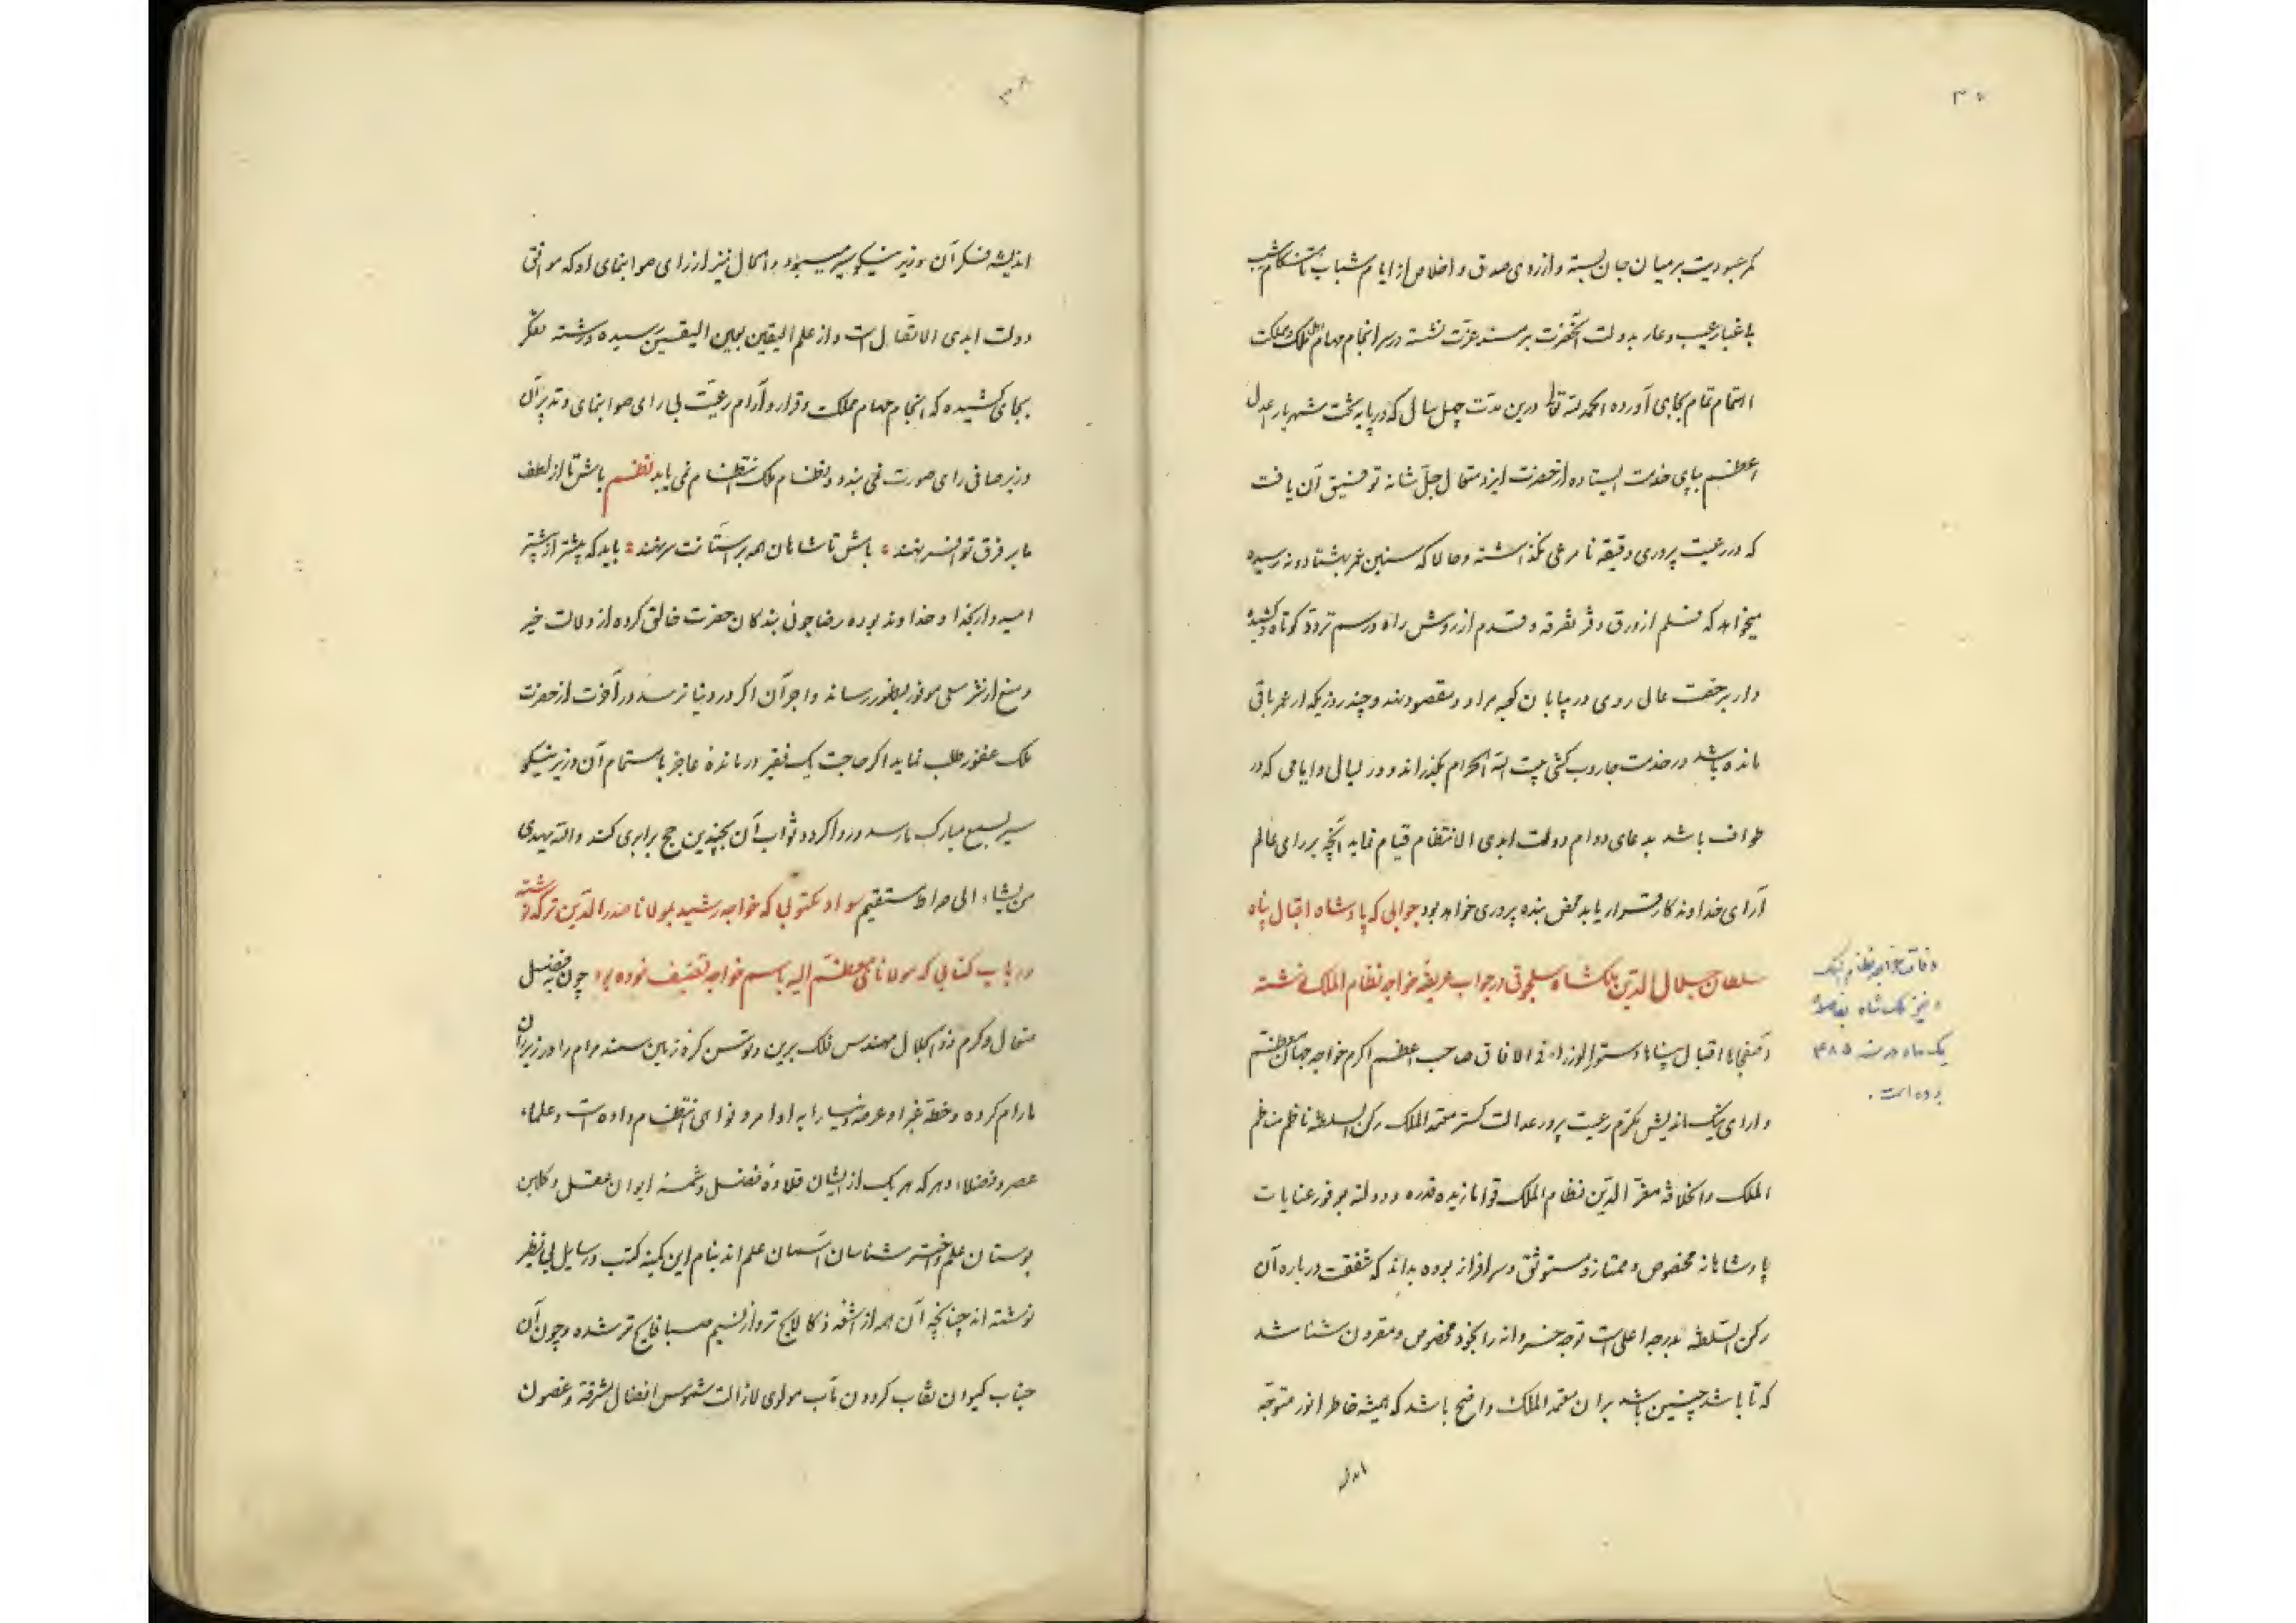 ۳۷
کمر عبودیت بر میان جان بسته و از روی صدق و اخلاص از ایام شباب تا هنگام شیب
با غبار عیب و عار بدولت آنحضرت بر مسند عزت نشسته در سرانجام مهام اهل ملک و مملکت
اهتمام تمام بجای آورده الحمد لله تعالی درین مدت چهل سال که در پایه تخت شهریار اعدل
اعظم بپای خدمت ایستاده از حضرت ایزد متعال جل شانه توفیق آن یافت
که در رعیت پروری دقیقه نامرعی نگذاشته و حالا که سنین عمر بهشتاد و نه رسیده
میخواهد که قلم از ورق دفتر تفرقه و قدم از روش راه و رسم تردد کوتاه و کشیده
دارد برخصت عالی روی در بیابان کعبه مراد و مقصود نهد و چند روزیکه از عمر باقی
مانده باشد در خدمت جاروب کشی بیت الله الحرام بگذراند و در لیالی و ایامی که در
طواف باشد بدعای دوام دولت ابدی الانتظام قیام نماید آنچه برای عالم
آرای خداوندکار قرار یابد محض بنده پروری خواهد بود جوابی که پادشاه اقبال پناه
سلطان جلال الدین ملکشاه سلجوقی در جواب عریضه خواجه نظام الملک نوشته
آصفجاها اقبال پناها دستور الوزراء فی الافاق صاحب اعظم اکرم خواجه جهان معظم
دارای نیک اندیش مکرم رعیت پرور عدالت گستر معتمد الملک رکن السلطنه ناظم مناظم
الملک و الخلافه مقرّ الدین نظام الملک قواما زیده قدره و دولته بوفور عنایات
پادشاهانه مخصوص و ممتاز و مستوثق و سرافراز بوده بداند که شفقت درباره آن
رکن السلطنه بدرجه اعلی است توجه خسروانه را بخود مخصوص و مقرون شناسد
که تا باشد چنین باشد بر آن معتمد الملک واضح باشد که همیشه خاطر انور متوجه
وفات خواجه نظام الملک
و نیز ملک شاه بفاصله
یک ماه در سنه ۴۸۵
بوده است.
۳۸
اندیشه فکر آن وزیر نیکو سیر میبود و الحال نیز از رای صوابنمای او که موافق
دولت ابدی الاتصال است و از علم الیقین بعین الیقین رسیده و رشته تفکر
بجای کشیده که انجام مهام مملکت و قرار و آرام رعیت بی رای صوابنمای و تدبیر آن
وزیر صافی رای صورت نمی بندد و نظام ملک انتظام نمی یابد نظم باش تا از لطف
ما بر فرق تو افسر نهند باش تا شاهان همه بر آستانت سر نهند باید که بیشتر از پیشتر
امیدوار بخدا و خداوند بوده رضاجوئی بندگان حضرت خالق کرده از دلالت خیر
و منع از شر سعی موفور بظهور رساند و اجر آن اگر در دنیا نرسد در آخرت از حضرت
ملک غفور طلب نماید اگر حاجت یک فقیر درمانده عاجز باهتمام آن وزیر نیکو
سیر بسمع مبارک ما رسد و روا گردد ثواب آن بچندین حج برابری کند والله یهدی
من یشاء الی صراط مستقیم سواد مکتوبی که خواجه رشید بمولانا صدر الدین ترکه نوشته
در باب کتابی که مولانای معظم الیه باسم خواجه تصنیف نموده بود چون مفضل
متعال و کرم ذو الجلال مهندس فلک برین و توسن کره زمین سمند مرام را در زیر ران
ما رام کرده و خطه غبرا و عرصه دنیا را به اوامر و نواهی انتظام داده است و علماء
عصر و فضلاء دهر که هر یک از ایشان قلاده فضل و شمسه ایوان عقل و گلبن
بوستان علم و اختر شناسان آسمان علم اند بنام این کمینه کتب و رسایل بی نظیر
نوشته اند چنانچه آن همه از اشعه ذکا لایح تر و از نسیم صبا فایح تر شده و چون آن
جناب کیوان نقاب گردون مآب مولوی لازالت شموس افضاله مشرقة و غصون